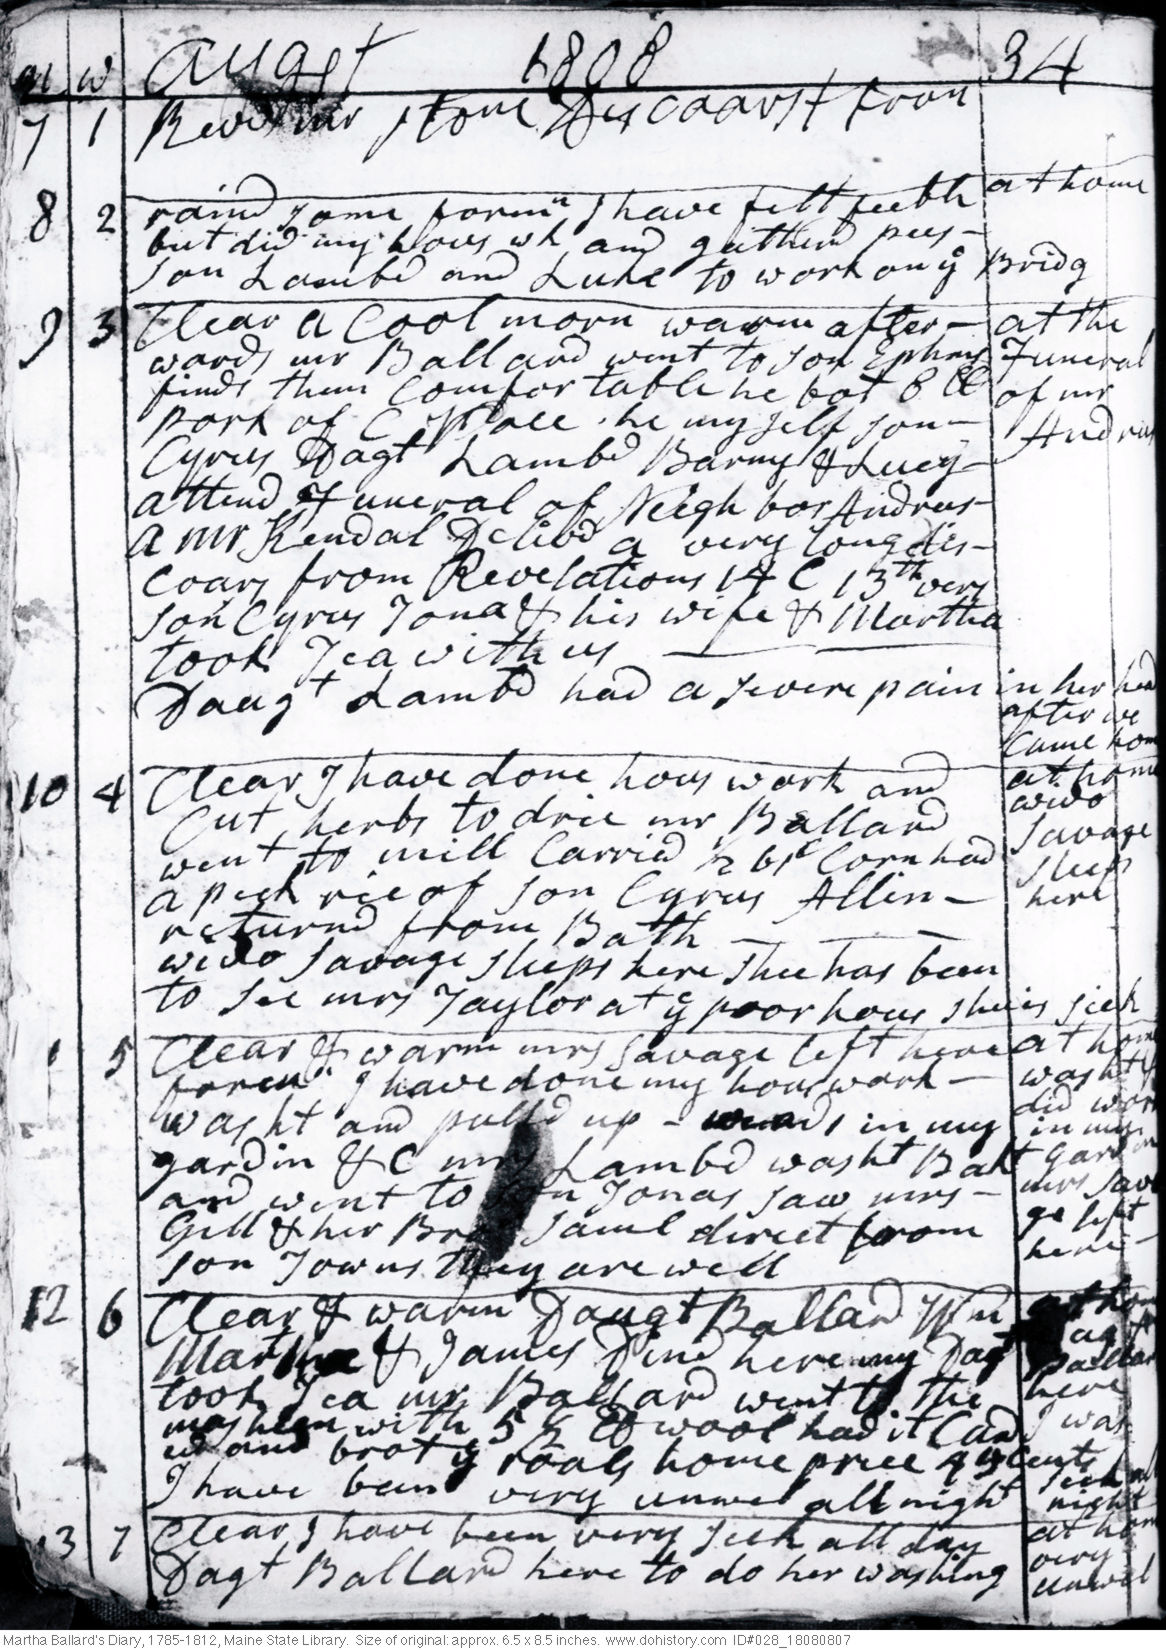 m w August 1808 34
7 1 Revd mr Stone Discoarst from
at home
8 2 raind some foren n I have felt feeble
but did my hous wk and gatherd pees -
son Lambd and Luke to work on ye Bridg
9 3 Clear a Cool morn warm after - at the
wards mr Ballard went to son Ephms Funeral
finds them Comfortable he bot 8 lb of mr
Pork of C he my self son - Andrus
Cyrus Dagt Lambd Barny & Lucy -
attend Funeral of Neighbor Andrus -
a mr Kendal Delivd a very long dis -
Coars from Revelations 14 C 13th vers
son Cyrus Jona & his wife & Martha
took Tea with us
Daugt Lambd had a severe pain in her head
after we
Came home
10 4 Clear I have done hous work and at home
Cut herbs to drie mr Ballard wido
went to mill Carried ½ bl Corn had Savage
a peck rie of son Cyrus Allin - sleeps
returnd from Bath here
wido Savage sleeps here shee has been
to see mrs Taylor at ye poor hous she is sick
1 5 Clear & warm mrs Savage left here at home
foren n I have done my hous work - washt &
washt and pulld up - weeads in my did work
in my
gardin & C mrs Lambd washt Bakt gardin
and went to son Jonas saw mrs - mrs Sava
Gill & her Bro Saml direct from ge left
son Towns they are well here -
12 6 Clear & warm Daugt Ballard Wm at home
Martha & James Dind here my Dagt Dagt
Ballard
took Tea mr Ballard went to the here
mashien with 5 ½ lb wool had it Card I was
and brot ye roals home price cents sick
I have been very unwel all night night
13 7 Clear I have been very sick all day at home
Dagt Ballard here to do her washing very
unwel
Martha Ballard's Diary, 1785-1812, Maine State Library. Size of original:approx. 6.5 x 8.5 inches. www.dohistory.com ID#028_18080807